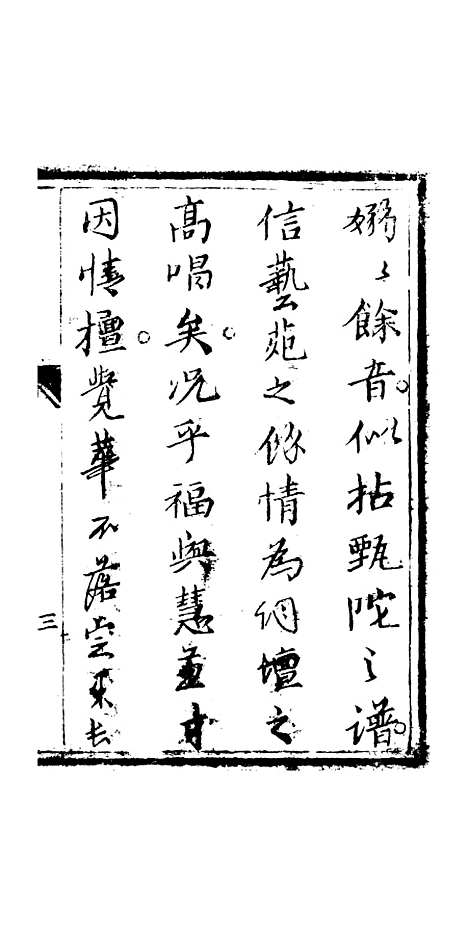 嫋〻餘音似拈甄陀之譜
信藝苑之餘情為詞壇之
高唱矣况乎福與慧兼才
因情擅覺華不落定果長
三